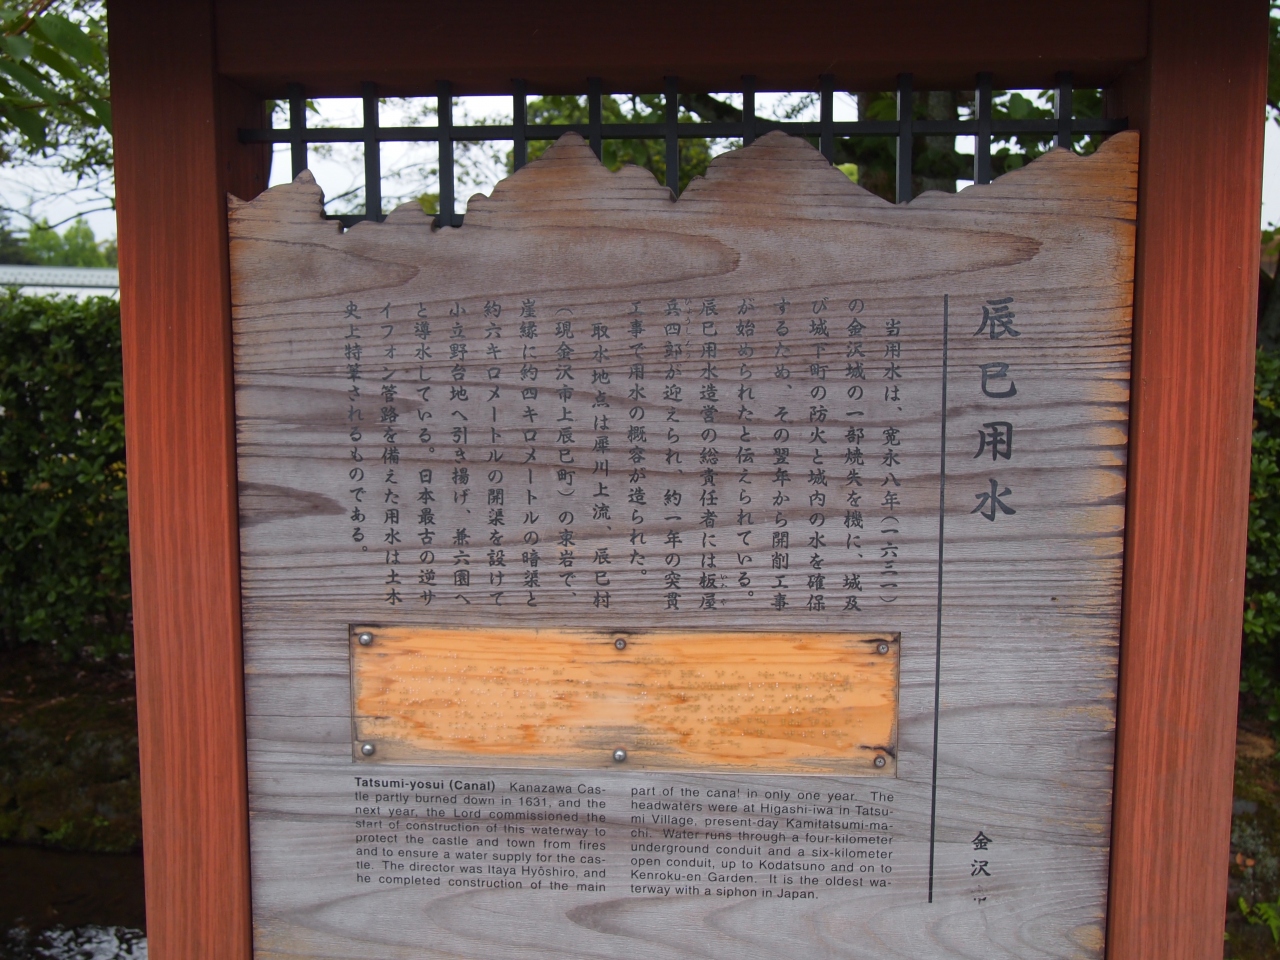 辰巳用水
当用水は、寛永八年（一六三一）
の金沢城の一部焼失を機に、城及
び城下町の防火と城内の水を確保
するため、その翌年から開削工事
が始められたと伝えられている。
辰巳用水造営の総責任者には板屋
兵四郎が迎えられ、約一年の突貫
工事で用水の概容が造られた。
取水地点は犀川上流、辰巳村
（現金沢市上辰巳町）の東岩で、
崖縁に約四キロメートルの暗渠と
約六キロメートルの開渠を設けて
小立野台地へ引き揚げ、兼六園へ
と導水している。日本最古の逆サ
イフォン管路を備えた用水は土木
史上特筆されるものである。
金沢市
Tatsumi-yosui (Canal) Kanazawa Cas-
tle partly burned down in 1631, and the
next year, the Lord commissioned the
start of construction of this waterway to
protect the castle and town from fires
and to ensure a water supply for the cas-
tle. The director was Itaya Hyōshiro, and
he completed construction of the main
part of the canal in only one year. The
headwaters were at Higashi-iwa in Tatsu-
mi Village, present-day Kamitatsumi-ma-
chi. Water runs through a four-kilometer
underground conduit and a six-kilometer
open conduit, up to Kodatsuno and on to
Kenroku-en Garden. It is the oldest wa-
terway with a siphon in Japan.